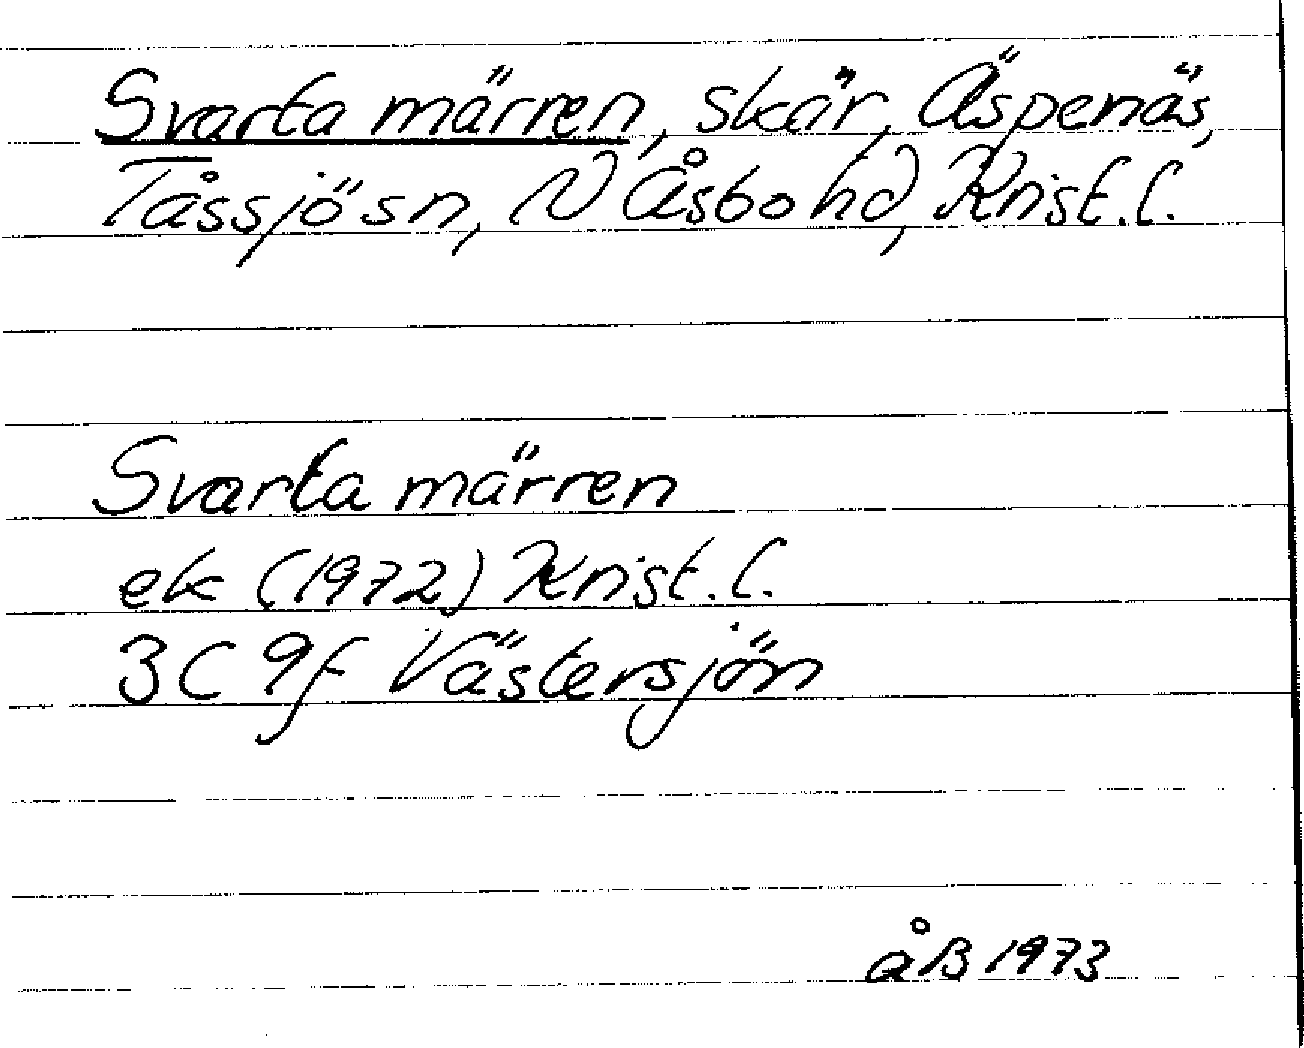 Svarta märren, skär, Äspenäs,
Tåssjö sn, N Åsbo hd, Krist. l.
Svarta märren
ek (1972) Krist. l.
3C 9f Västersjön
åB 1973